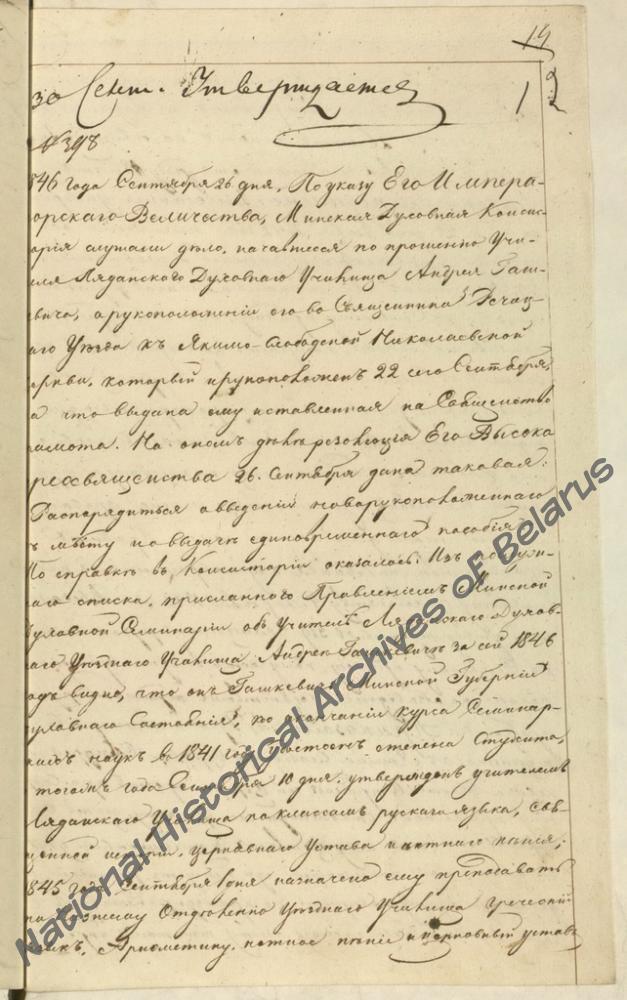 19
30 Сент. Утверждается
1 2
№ 398
846 года Сентября 26 дня. По указу Его Импера-
орскаго Величества, Минская Духовная Консис-
орія слушали дѣло, начавшееся по прошенію Учи-
еля Ляданскаго Духовнаго Училища Андрея Гаш-
евича, о рукоположеніи его во Священника Рѣчиц-
аго Уѣзда къ Якимо-Слободской Николаевской
еркви, который и рукоположенъ 22 сего Сентября,
а что выдана ему и ставленная на Священство
рамота. На ономъ дѣлѣ резолюція Его Высоко
реосвященства 26 Сентября дана таковая:
Распорядиться о введеніи новорукоположеннаго
ъ мѣсту и о выдачѣ единовременнаго пособія.
По справкѣ въ Консисторіи оказалось: Изъ
аго списка, присланнаго Правленіемъ Минской
уховной Семинаріи объ учителѣ Ляданскаго Духов-
аго Уѣзднаго Училища Андреѣ Гашкевичѣ за сей 1846
одъ видно, что онъ Гашкевичъ Минской Губерніи
уховнаго Состоянія, по окончаніи курса Семинар-
наукъ въ 1841 году удостоенъ степени Студента,
тогожъ года Сентября 10 дня утвержденъ учителемъ
Ляданскаго Училища по классамъ рускаго языка, Свя-
щенной исторіи, церковнаго Устава и нотнаго пѣнія;
845 года Сентября дня назначено ему преподавать
Отдѣленію Уѣзднаго Училища греческій
зыкъ, Ариѳметику, нотное пѣніе и церковный уставъ
National Historical Archives of Belarus